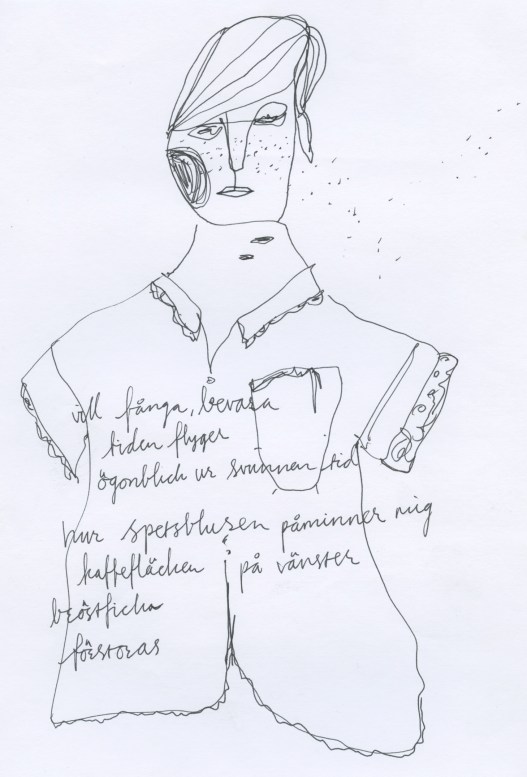 vill fånga, bevara
tiden flyger
ögonblick ur svunnen tid
hur spetsblusen påminner mig
kaffefläcken på vänster
bröstficka
förstoras